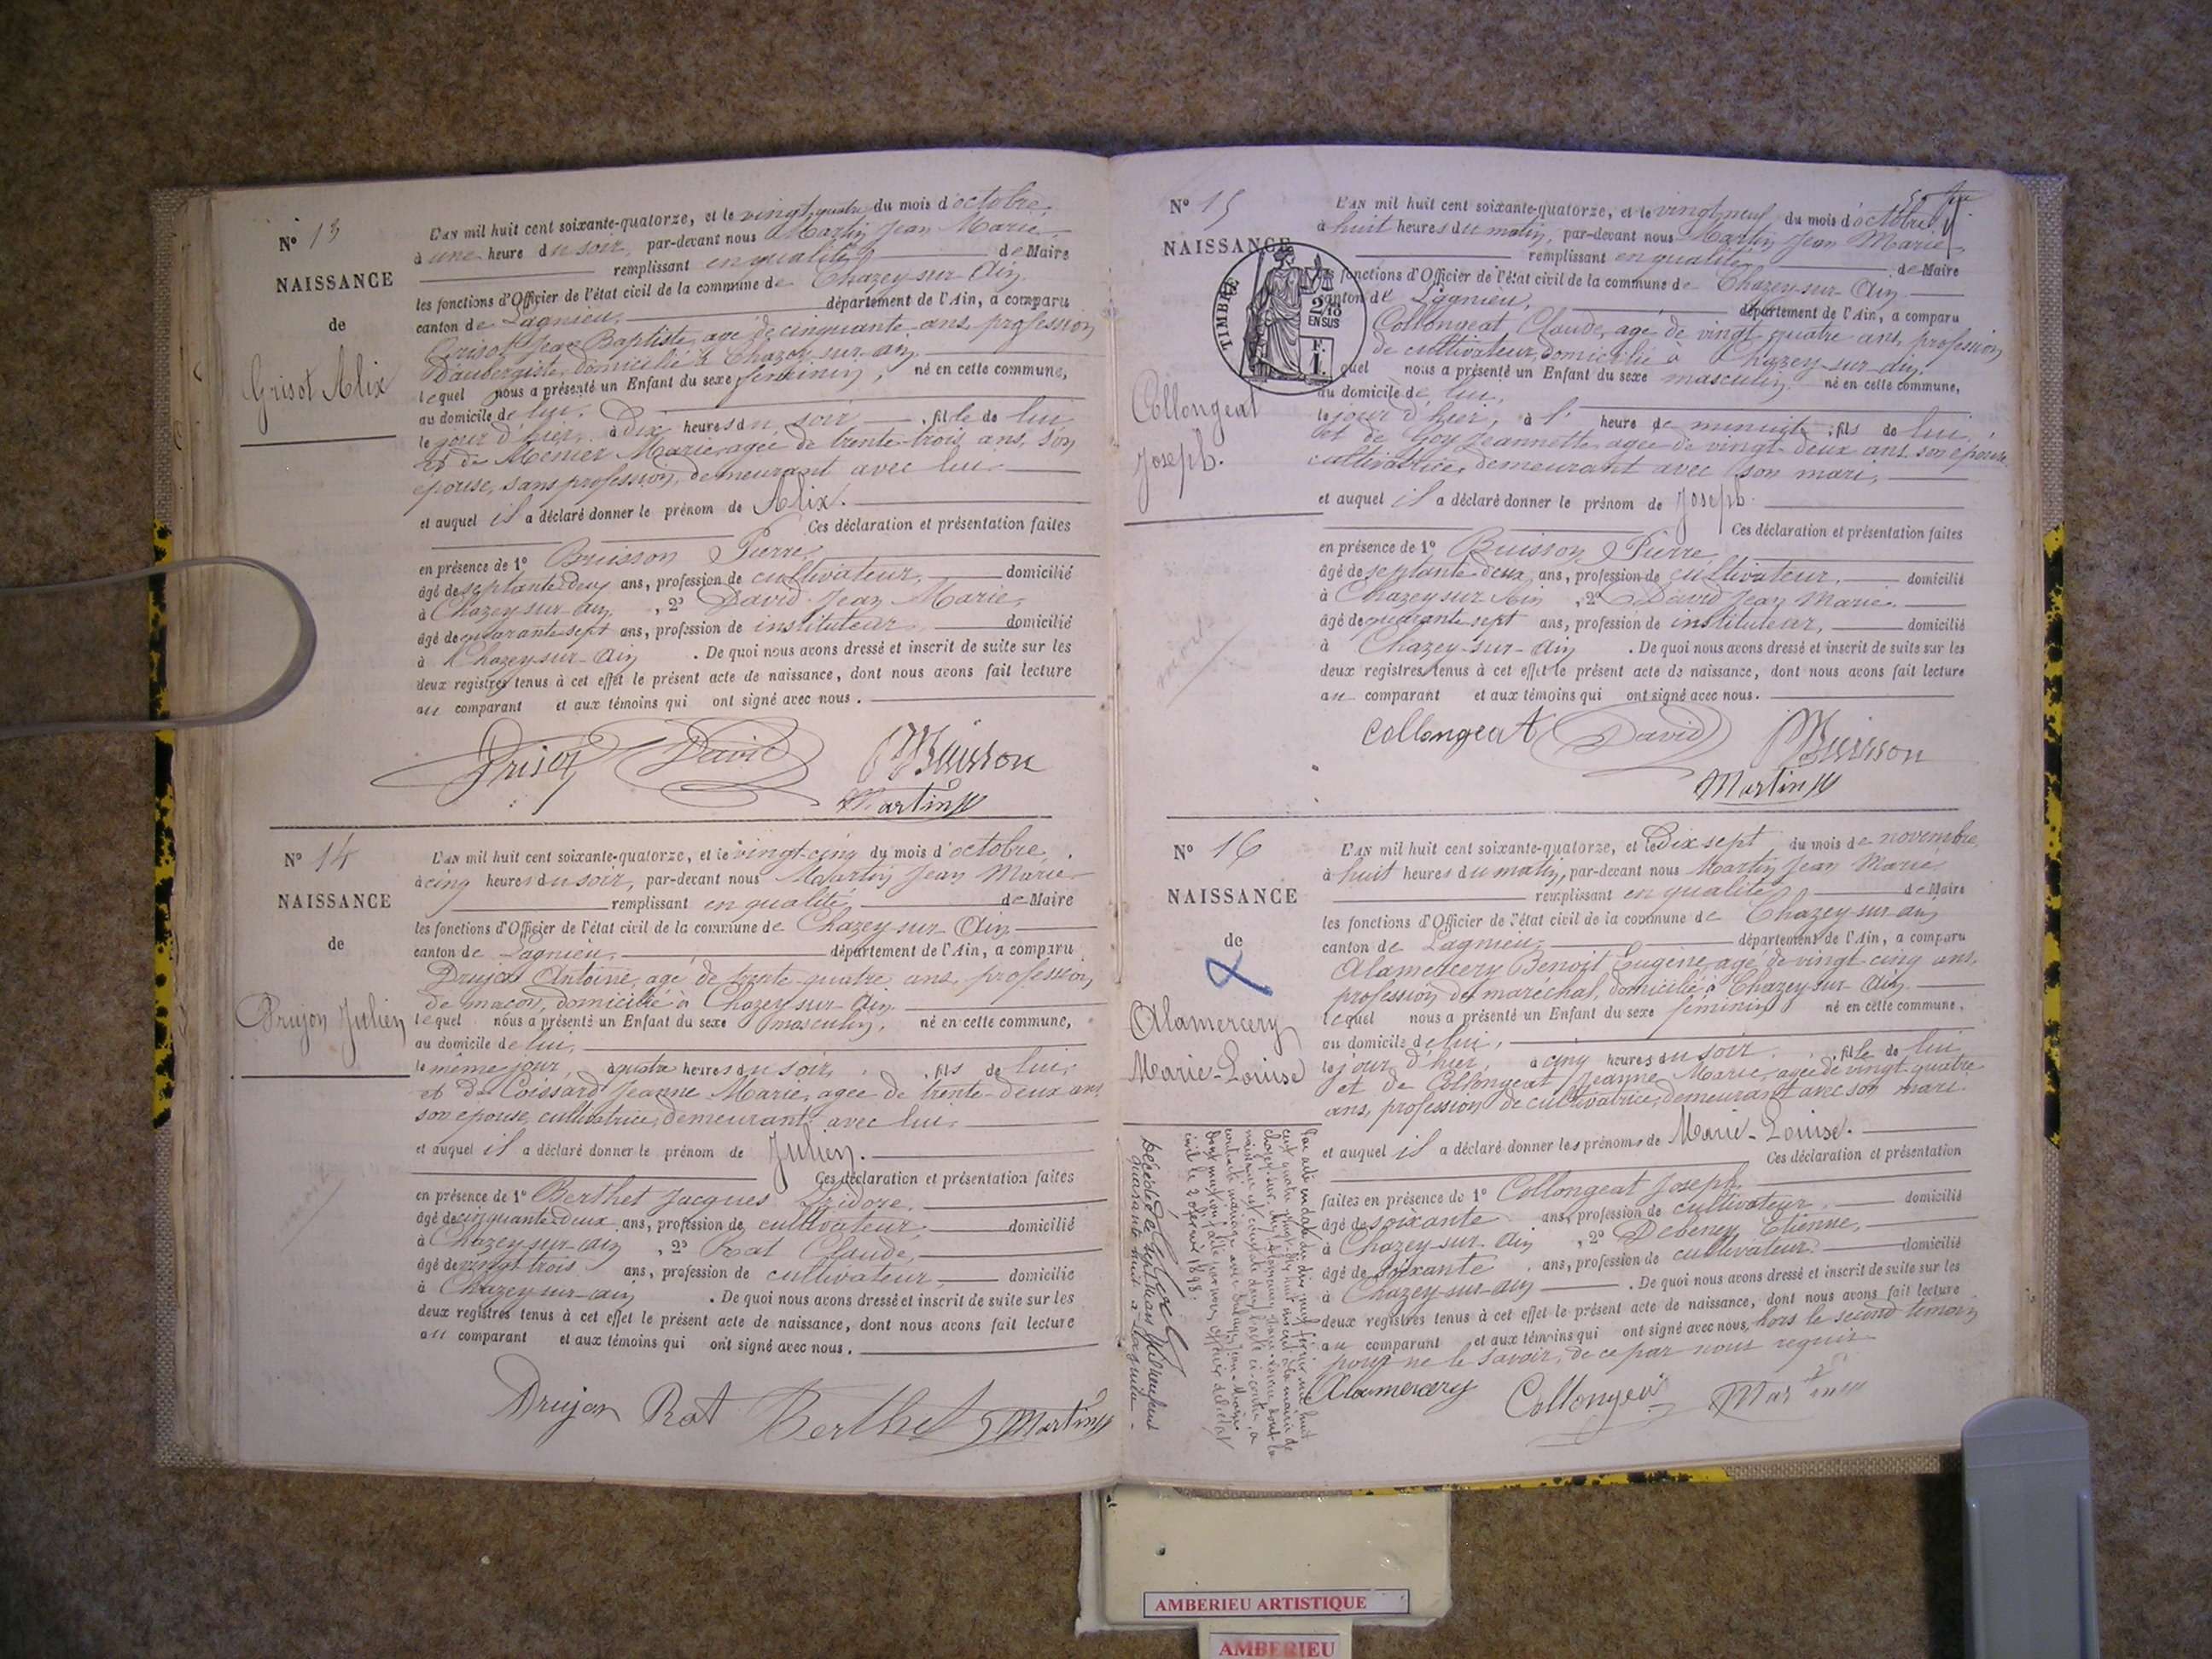 N° 13
NAISSANCE
de
Grisot Alix
L'AN mil huit cent soixante-quatorze, et le vingt quatre du mois d'octobre,
à une heure du soir, par-devant nous Martin Jean Marie
remplissant en qualité de Maire
les fonctions d'Officier de l'état civil de la commune de Chazey-sur-Ain
canton de Lagnieu, département de l'Ain, a comparu
Grisot Jean Baptiste, agé de cinquante ans, profession
d'aubergiste, domicilié à Chazey-sur-ain,
lequel nous a présenté un Enfant du sexe féminin, né en cette commune,
au domicile de lui,
le jour d'hier, à dix heures du soir, fille de lui
et de Menier Marie, agée de trente-trois ans, son
épouse, sans profession, demeurant avec lui
et auquel il a déclaré donner le prénom de Alix.
Ces déclaration et présentation faites
en présence de 1° Buisson Pierre,
âgé de septante deux ans, profession de cultivateur, domicilié
à Chazey sur ain, 2° David Jean Marie,
âgé de quarante sept ans, profession de instituteur, domicilié
à Chazey-sur-Ain. De quoi nous avons dressé et inscrit de suite sur les
deux registres tenus à cet effet le présent acte de naissance, dont nous avons fait lecture
au comparant et aux témoins qui ont signé avec nous.
Grisot David PBuisson
Martin
N° 14
NAISSANCE
de
Drujon Julien
L'AN mil huit cent soixante-quatorze, et le vingt-cinq du mois d'octobre,
à cinq heures du soir, par-devant nous Martin Jean Marie
remplissant en qualité de Maire
les fonctions d'Officier de l'état civil de la commune de Chazey-sur-Ain
canton de Lagnieu, département de l'Ain, a comparu
Drujon Antoine, agé de trente quatre ans, profession
de maçon, domicilié à Chazey-sur-Ain
lequel nous a présenté un Enfant du sexe masculin, né en cette commune,
au domicile de lui,
le même jour, à quatre heures du soir, fils de lui,
et de Coissard Jeanne Marie, agée de trente-deux ans
son épouse, cultivatrice, demeurant avec lui
et auquel il a déclaré donner le prénom de Julien.
Ces déclaration et présentation faites
en présence de 1° Berthet Jacques Izidore,
âgé de cinquante deux ans, profession de cultivateur, domicilié
à Chazey-sur-ain, 2° Rat Claude,
âgé de vingt trois ans, profession de cultivateur domicilié
à Chazey-sur-ain. De quoi nous avons dressé et inscrit de suite sur les
deux registres tenus à cet effet le présent acte de naissance, dont nous avons fait lecture
au comparant et aux témoins qui ont signé avec nous.
Drujon Rat Berthet Martin
N° 15
NAISSANCE
TIMBRE
2/10
EN SUS
F.
1.
Collongeat
Joseph.
L'AN mil huit cent soixante-quatorze, et le vingt neuf du mois d'octobre
à huit heures du matin, par-devant nous Martin Jean Marie
remplissant en qualité de Maire
les fonctions d'Officier de l'état civil de la commune de Chazey-sur-Ain
canton de Lagnieu, département de l'Ain, a comparu
Collongeat Claude, agé de vingt quatre ans, profession
de cultivateur, domicilié à Chazey-sur-ain.
quel nous a présenté un Enfant du sexe masculin né en cette commune,
au domicile de lui,
le jour d'hier, à l' heure de minuit, fils de lui,
et de Goy Jeannette, agée de vingt-deux ans, son épouse
cultivatrice, demeurant avec son mari,
et auquel il a déclaré donner le prénom de Joseph.
Ces déclaration et présentation faites
en présence de 1° Buisson Pierre,
âgé de septante deux ans, profession de cultivateur, domicilié
à Chazey sur Ain, 2° David Jean Marie,
âgé de quarante sept ans, profession de instituteur, domicilié
à Chazey-sur-Ain. De quoi nous avons dressé et inscrit de suite sur les
deux registres tenus à cet effet le présent acte de naissance, dont nous avons fait lecture
au comparant et aux témoins qui ont signé avec nous.
Collongeat David PBuisson
Martin
N° 16
NAISSANCE
de
Alamercery
Marie-Louise
L'AN mil huit cent soixante-quatorze, et le Dix sept du mois de novembre,
à huit heures du matin, par-devant nous Martin Jean Marie
remplissant en qualité de Maire
les fonctions d'Officier de l'état civil de la commune de Chazey-sur-ain
canton de Lagnieu, département de l'Ain, a comparu
Alamercery Benoit Eugène, agé de vingt-cinq ans,
profession de maréchal, domicilié à Chazey-sur-Ain
lequel nous a présenté un Enfant du sexe féminin né en cette commune,
au domicile de lui,
le jour d'hier, à cinq heures du soir, fille de lui
et de Collongeat Jeanne Marie, agée de vingt-quatre
ans, profession de cultivatrice, demeurant avec son mari
et auquel il a déclaré donner les prénoms de Marie-Louise.
Ces déclaration et présentation
faites en présence de 1° Collongeat Joseph,
âgé de soixante ans, profession de cultivateur domicilié
à Chazey-sur-Ain, 2° Debeney Etienne,
âgé de soixante ans, profession de cultivateur domicilié
à Chazey-sur-ain. De quoi nous avons dressé et inscrit de suite sur les
deux registres tenus à cet effet le présent acte de naissance, dont nous avons fait lecture
au comparant et aux témoins qui ont signé avec nous, hors le second témoin
pour ne le savoir, de ce par nous requis
Alamercery Collongeat Martin
AMBERIEU ARTISTIQUE
AMBERIEU